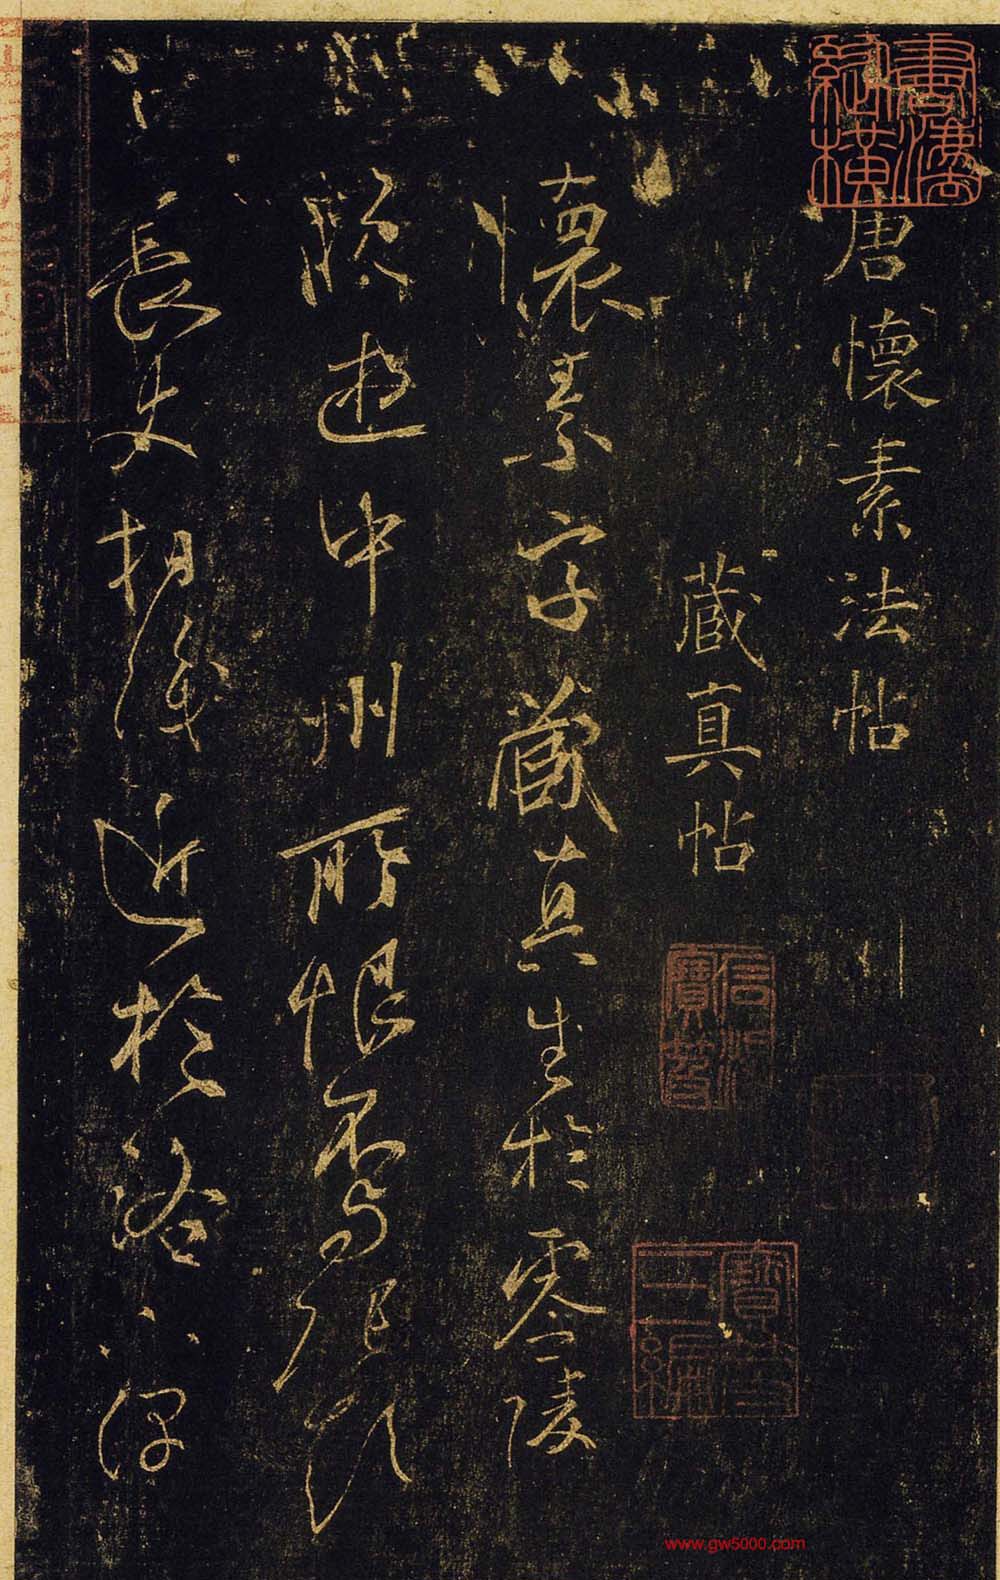 唐懷素法帖
藏真帖
懷素字藏真生於零陵
晚遊中州所恨不與張顛
長史相識近於洛下偶
www.gw5000.com